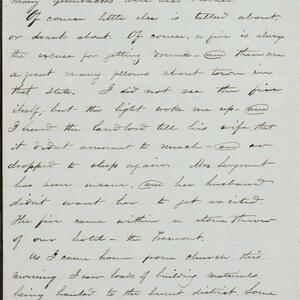 many greenbacks were also burned.
Of course little else is talked about,
or drank about. Of course, a fire is always
the excuse for getting drunk — and there are
a great many fellows about town in
that state. I did not see the fire
itself, but the light woke me up — and
I heard the landlord tell his wife, that
it didn't amount to much — and so
dropped to sleep again. Mrs Sergeant
has been insane, and her husband
didn't want her to get excited
The fire came within a stone throw
of our hotel — the Tremont.
As I came home from church this
morning, I saw loads of building materials
being hauled to the burnt district. Some